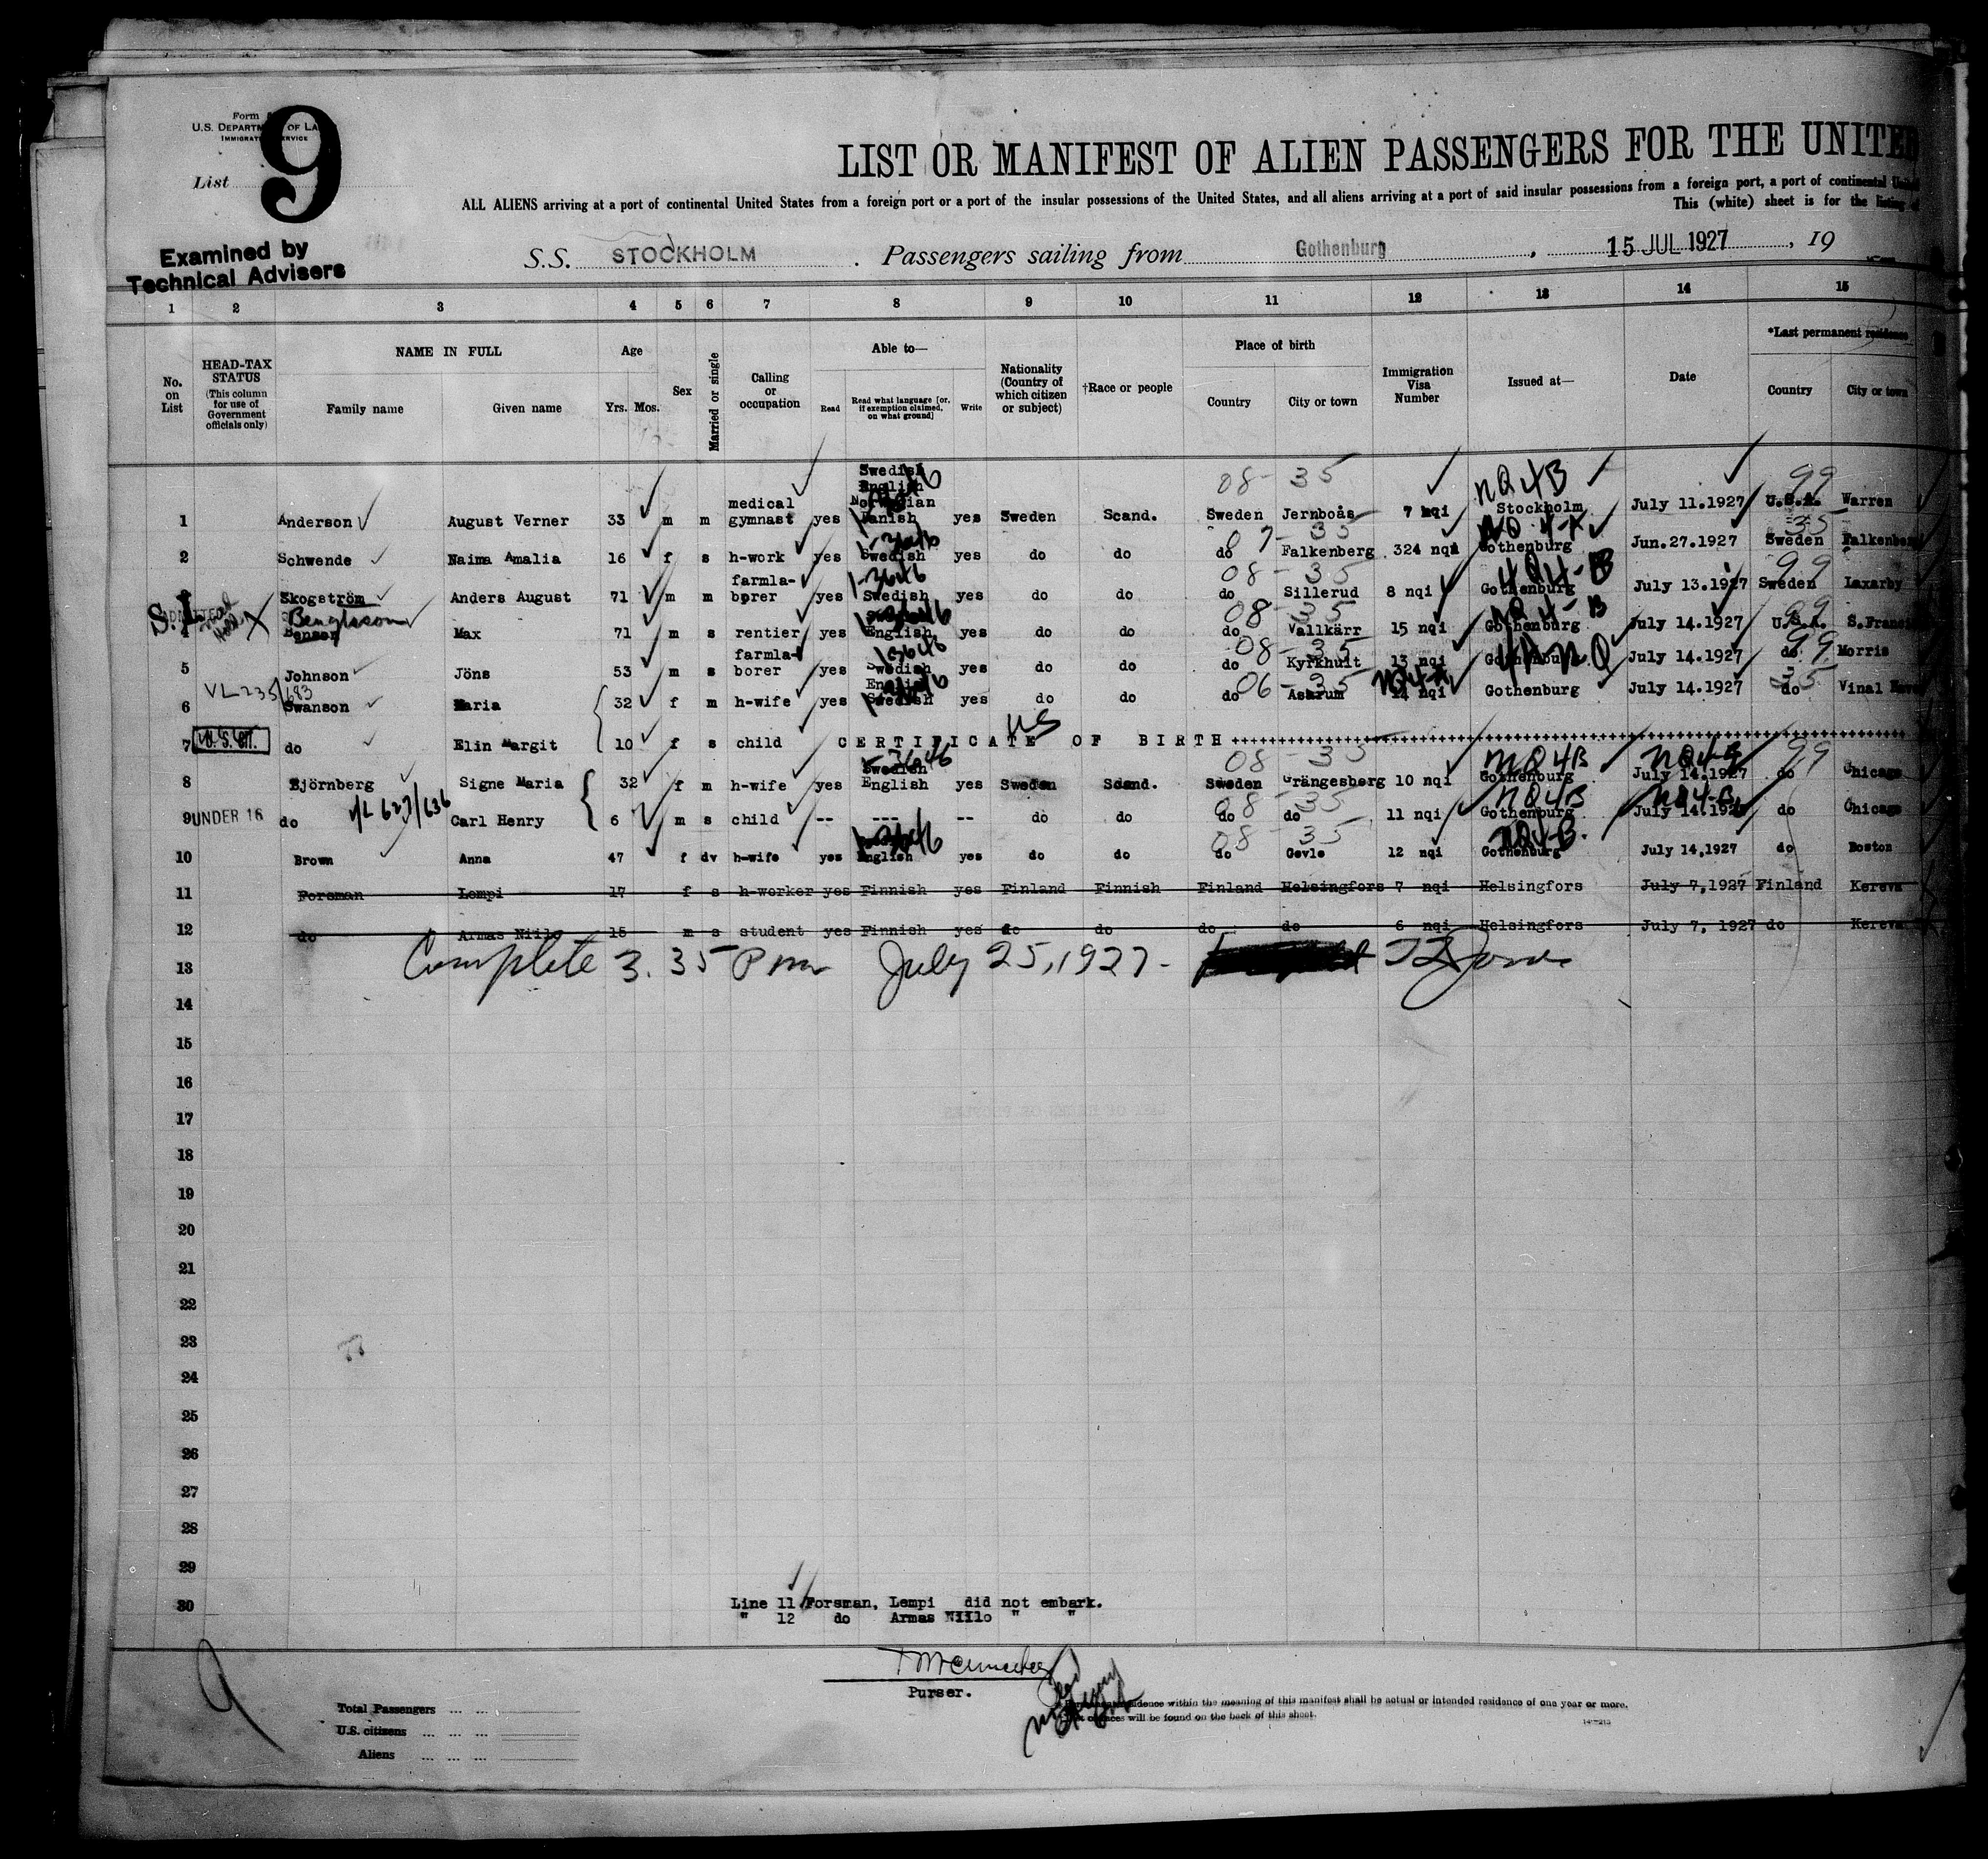 Form
U.S. DEPARTMENT OF LA
IMMIGRAT SERVICE
List 9
LIST OR MANIFEST OF ALIEN PASSENGERS FOR THE UNITED
ALL ALIENS arriving at a port of continental United States from a foreign port or a port of the insular possessions of the United States, and all aliens arriving at a port of said insular possessions from a foreign port, a port of continental United
This (white) sheet is for the listing of
Examined by
Technical Advisers
S.S. STOCKHOLM . Passengers sailing from Gothenburg , 15 JUL 1927 , 19
1 2 3 4 5 6 7 8 9 10 11 12 13 14 15
No. on List
HEAD-TAX STATUS (This column for use of Government officials only)
NAME IN FULL
Family name Given name
Age
Yrs. Mos.
Sex
Married or single
Calling or occupation
Able to—
Read Read what language [or, if exemption claimed, on what ground] Write
Nationality (Country of which citizen or subject)
†Race or people
Place of birth
Country City or town
Immigration Visa Number
Issued at—
Date
*Last permanent residence
Country City or town
08-35 NQ4B 99
1 Anderson August Verner 33 m m medical gymnast yes Swedish English Norwegian Danish yes Sweden Scand. Sweden Jernboås 7 nqi Stockholm July 11.1927 U.S.A. Warren
07-35 35
2 Schwende Naima Amalia 16 f s h-work yes Swedish yes do do do Falkenberg 324 nqi Gothenburg Jun.27.1927 Sweden Falkenberg
08-35 99
Skogström Anders August 71 m m farmla-borer yes Swedish yes do do do Sillerud 8 nqi Gothenburg July 13.1927 Sweden Laxarby
S.I. X Bengtsson 08-35 99
Benson Max 71 m s rentier yes English yes do do do Vallkärr 15 nqi Gothenburg July 14.1927 U.S.A. S.Franci
08-35 99
5 Johnson Jöns 53 m s farmla-borer yes Swedish yes do do do Kyrkhult 13 nqi Gothenburg July 14.1927 do Morris
VL 235/683 06-35 35
6 Swanson Maria 32 f m h-wife yes English Swedish yes do do do Asarum 14 nqi Gothenburg July 14.1927 do Vinal Haven
US
7 U.S.CIT. do Elin Margit 10 f s child CERTIFICATE OF BIRTH
08-35 NQ4B NQ4B 99
8 Björnberg Signe Maria 32 f m h-wife yes Swedish English yes Sweden Scand. Sweden Grängesberg 10 nqi Gothenburg July 14.1927 do Chicago
V/L 627/636 08-35 NQ4B NQ4B
9 UNDER 16 do Carl Henry 6 m s child -- --- -- do do do do 11 nqi Gothenburg July 14.1927 do Chicago
08-35 NQ4-B.
10 Brown Anna 47 f dv h-wife yes English yes do do do Gevle 12 nqi Gothenburg July 14,1927 do Boston
11 Forsman Lempi 17 f s h-worker yes Finnish yes Finland Finnish Finland Helsingfors 7 nqi Helsingfors July 7,1927 Finland Kerava
12 do Armas Niilo 15 m s student yes Finnish yes do do do do 6 nqi Helsingfors July 7, 1927 do Kerava
Complete 3.35 Pm July 25, 1927-
13
14
15
16
17
18
19
20
21
22
23
24
25
26
27
28
29
30
Line 11 Forsman, Lempi did not embark.
" 12 do Armas Niilo " "
9
Purser.
Total Passengers
U.S. citizens
Aliens
residence within the meaning of this manifest shall be actual or intended residence of one year or more.
will be found on the back of this sheet.
14—213